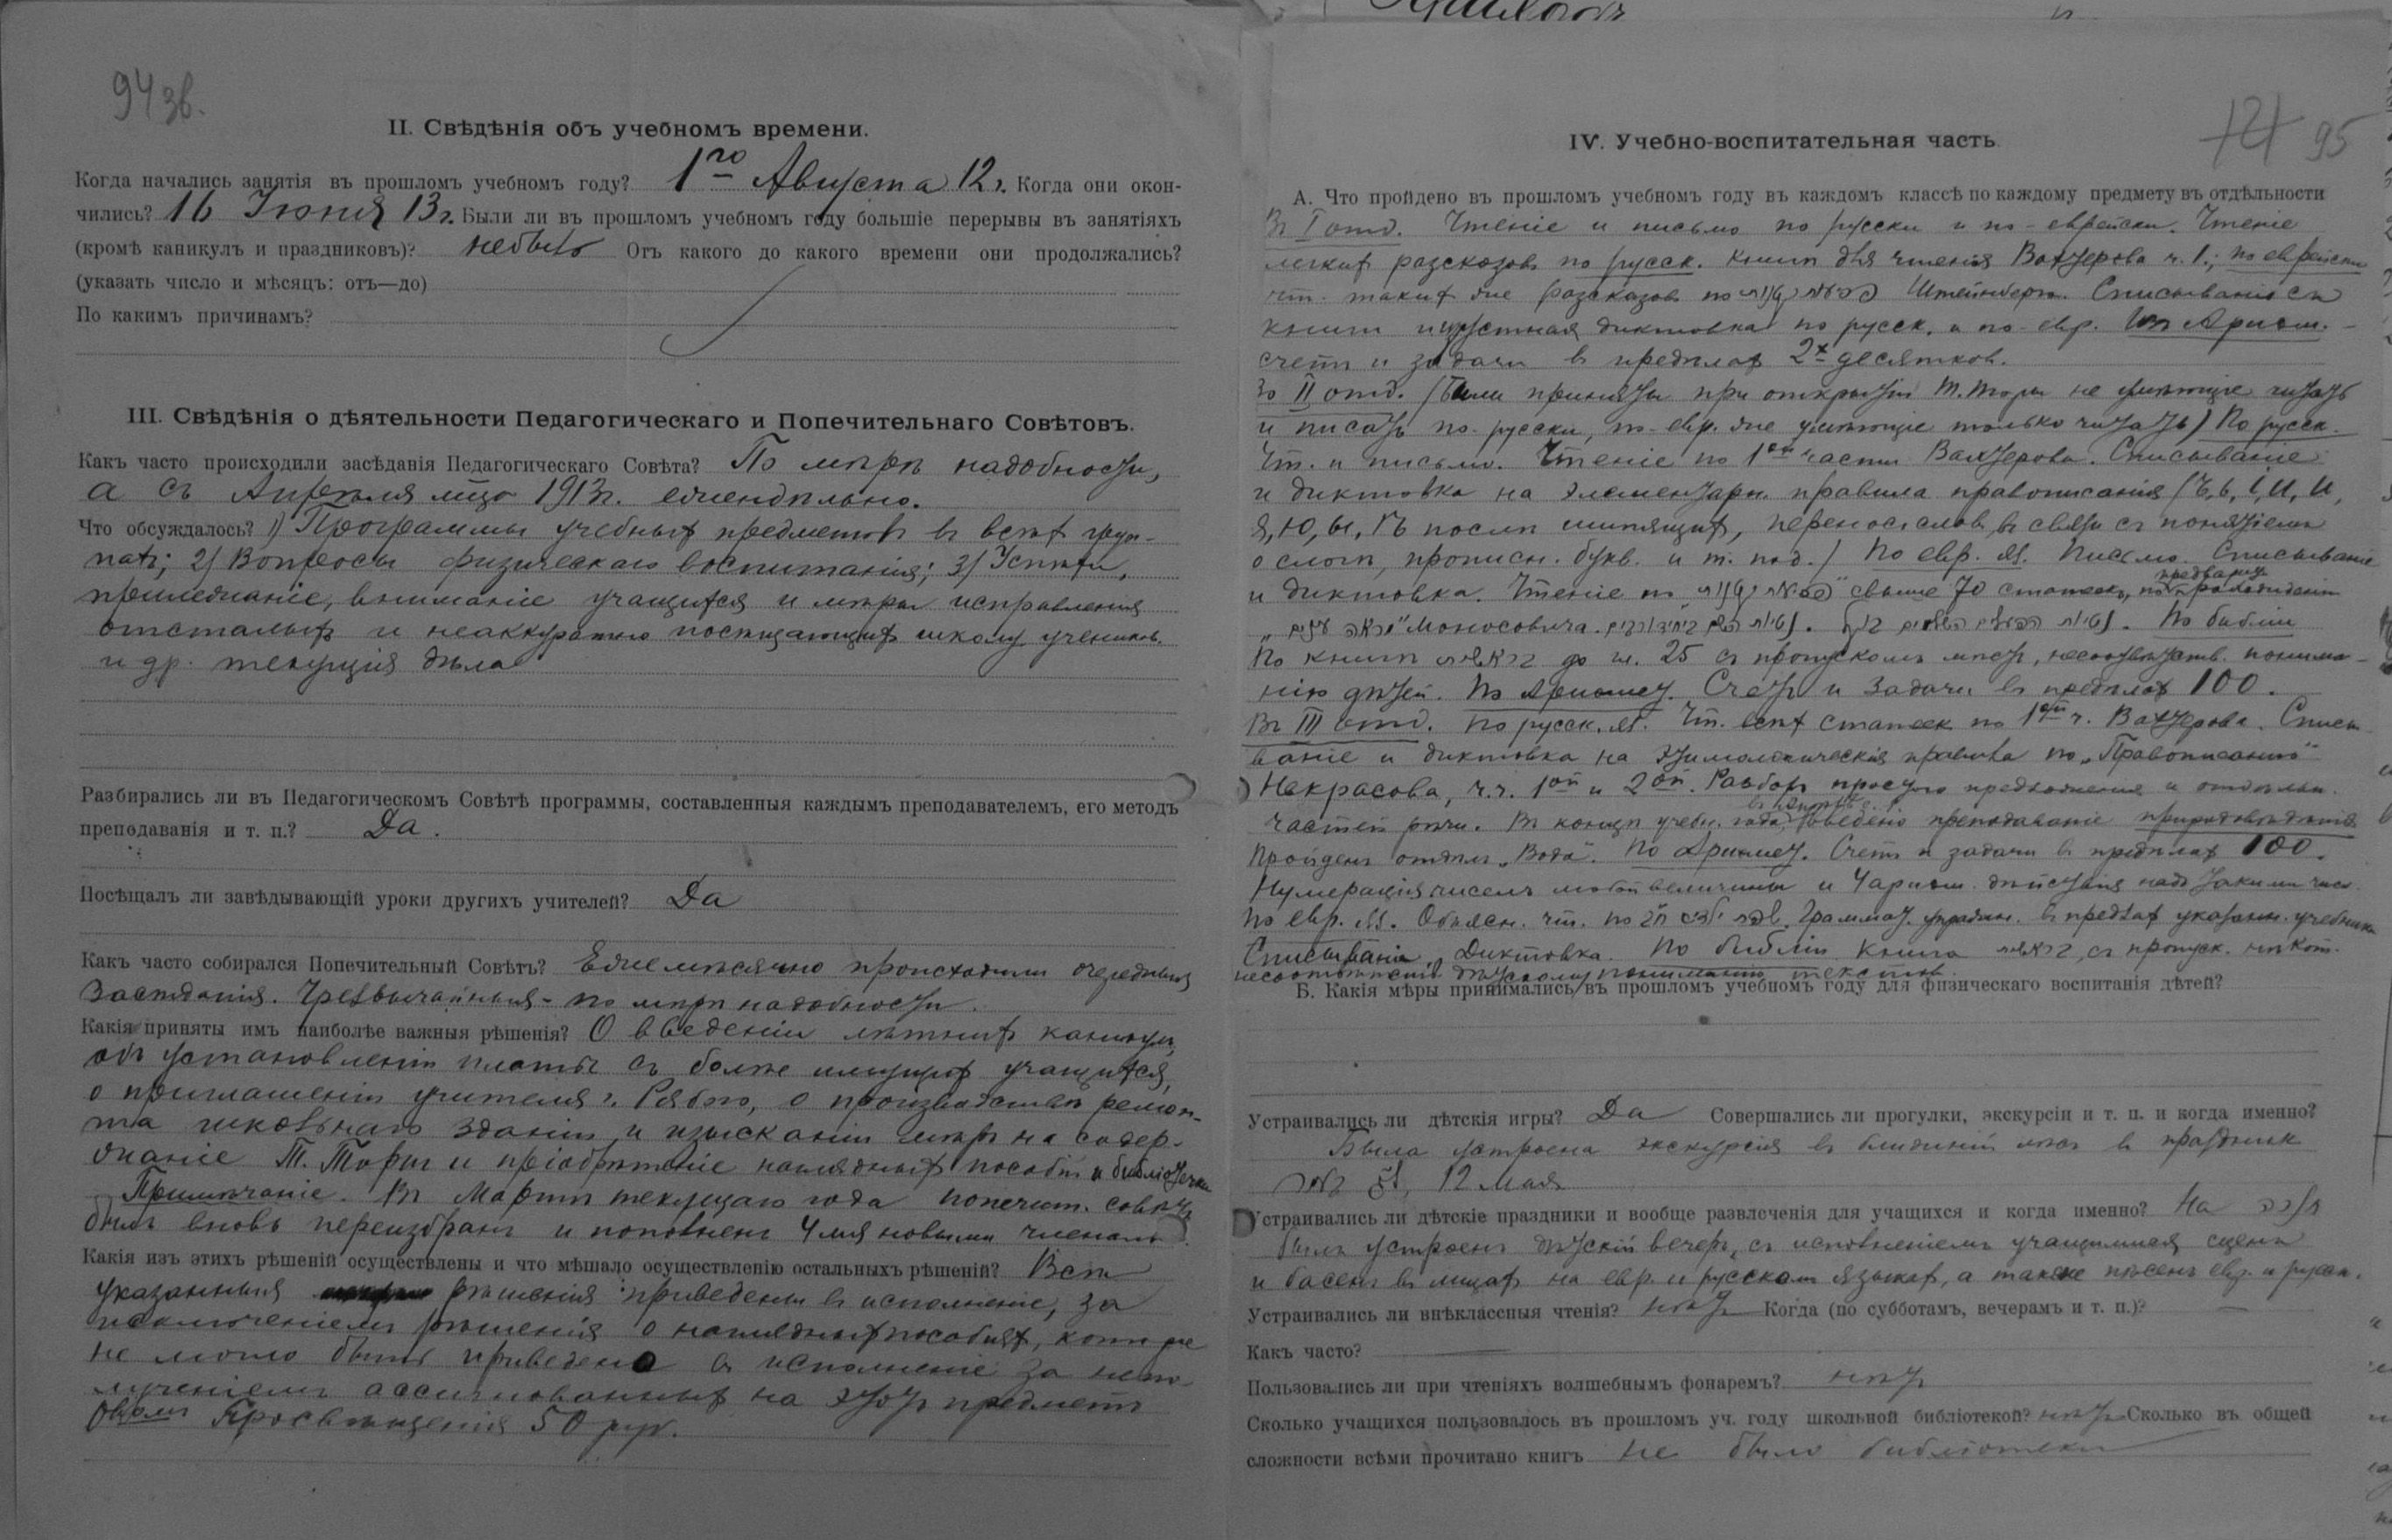 94 зв.
II. Свѣдѣнія объ учебномъ времени.
Когда начались занятія въ прошломъ учебномъ году? 1го Августа 12 г. Когда они окон-
чились? 16 Іюня 13 г. Были ли въ прошломъ учебномъ году большіе перерывы въ занятіяхъ
(кромѣ каникулъ и праздниковъ)? небыло Отъ какого до какого времени они продолжались?
(указать число и мѣсяцъ: отъ—до)
По какимъ причинамъ?
III. Свѣдѣнія о дѣятельности Педагогическаго и Попечительнаго Совѣтовъ.
Какъ часто происходили засѣданія Педагогическаго Совѣта? По мѣрѣ надобности,
а съ Апрѣля мца 1913 г. еженедѣльно.
Что обсуждалось? 1) Программы учебныхъ предметовъ въ всѣхъ груп-
пахъ; 2) Вопросы физическаго воспитанія; 3) Успѣхи,
прилежаніе, вниманіе учащихся и мѣры исправленія
отсталыхъ и неаккуратно посѣщающихъ школу учениковъ.
и др. текущія дѣла
Разбирались ли въ Педагогическомъ Совѣтѣ программы, составленныя каждымъ преподавателемъ, его методъ
преподаванія и т. п.? Да.
Посѣщалъ ли завѣдывающій уроки другихъ учителей? Да
Какъ часто собирался Попечительный Совѣтъ? Ежемѣсячно происходили очередныя
Засѣданія. Чрезвычайныя - по мѣрѣ надобности.
Какія приняты имъ наиболѣе важныя рѣшенія? О введеніи лѣтнихъ каникулъ,
объ установленіи платы съ болѣе имущихъ учащихся,
о приглашеніи учителя г. Рябого, о производствѣ ремон-
та школьнаго зданія и изысканіи мѣръ на содер-
жаніе Т. Торы и пріобрѣтеніе наглядныхъ пособій и библіотечки
Примѣчаніе. Въ Мартѣ текущаго года попечит. совѣтъ
былъ вновь переизбранъ и пополненъ 4мя новыми членами.
Какія изъ этихъ рѣшеній осуществлены и что мѣшало осуществленію остальныхъ рѣшеній? Всѣ
указанныя рѣшенія приведены въ исполненіе, за
исключеніемъ рѣшенія о наглядныхъ пособіяхъ, кот. не
не могло быть приведено въ исполненіе за непо-
лученіемъ ассигнованныхъ на этотъ предметъ
Овомъ Просвѣщенія 50 рух.
IV. Учебно-воспитательная часть
95
А. Что пройдено въ прошломъ учебномъ году въ каждомъ классѣ по каждому предмету въ отдѣльности
Въ I отд. Чтеніе и письмо по русски и по-еврейски. Чтеніе
легкихъ разсказовъ по русск. книгѣ для чтенія Вахтерова ч. 1.; по еврейски
чт. такихъ же разсказовъ по Штейнберга. Списываніе съ
книги и изустная диктовка по русск. и по-евр. По Ариѳм.
счетъ и задачи въ предѣлахъ 2х десятковъ.
Во II отд. (Были приняты при открытіи Т. Торы не умѣющіе читать
и писать по-русски, по-евр. же умѣющіе только читать) По русск.
Чт. и письмо. Чтеніе по 1ой части Вахтерова. Списываніе
и диктовка на элементарн. правила правописанія (ъ, ь, і, и, й,
я, ю, ы, ѣ послѣ шипящихъ, переносъ словъ въ связи съ понятіемъ
о слогѣ, прописн. букв. и т. под.) По евр. яз. Письмо. Списываніе
и диктовка. Чтеніе по свыше 70 статеекъ, по
Моносовича. По библіи
По книгѣ בראשית до гл. 25 съ пропускомъ мѣстъ, несоотвѣтств. понима-
нію дѣтей. По Ариѳмет. Счетъ и задачи въ предѣлахъ 100.
Въ III отд. По русск. яз. Чт. всѣхъ статеекъ по 1ой ч. Вахтерова. Списы-
ваніе и диктовка на этимологическія правила по „Правописанію"
Некрасова, ч.ч. 1ой и 2ой. Разборъ простого предложенія и отдѣльн.
частей рѣчи. Въ концѣ учебн. года введено преподаваніе природовѣдѣнія
Пройденъ отдѣлъ „Вода". По Ариѳмет. Счетъ и задачи въ предѣлахъ 100.
Нумерація чиселъ любой величины и 4 ариѳм. дѣйствія надъ такими числ.
По евр. яз. Объясн. чт. по Граммат. упражн. въ предѣлахъ указанн. учебника
Списываніе, Диктовка. По библіи книга בראשית, съ пропуск. нѣкот.
несоотвѣтств. дѣтскому пониманію текстовъ.
Б. Какія мѣры принимались въ прошломъ учебномъ году для физическаго воспитанія дѣтей?
Устраивались ли дѣтскія игры? Да Совершались ли прогулки, экскурсіи и т. п. и когда именно?
Была устроена экскурсія въ ближній лѣсъ въ праздникъ
12 Мая
Устраивались ли дѣтскіе праздники и вообще развлеченія для учащихся и когда именно? На חנוכה
былъ устроенъ дѣтскій вечеръ, съ исполненіемъ учащимися сценъ
и басенъ въ лицахъ на евр. и русскомъ языкахъ, а также пѣсенъ евр. и русск.
Устраивались ли внѣклассныя чтенія? нѣтъ Когда (по субботамъ, вечерамъ и т. п.)? —
Какъ часто?
Пользовались ли при чтеніяхъ волшебнымъ фонаремъ? нѣтъ
Сколько учащихся пользовалось въ прошломъ уч. году школьной библіотекой? нѣтъ Сколько въ общей
сложности всѣми прочитано книгъ не было библіотеки